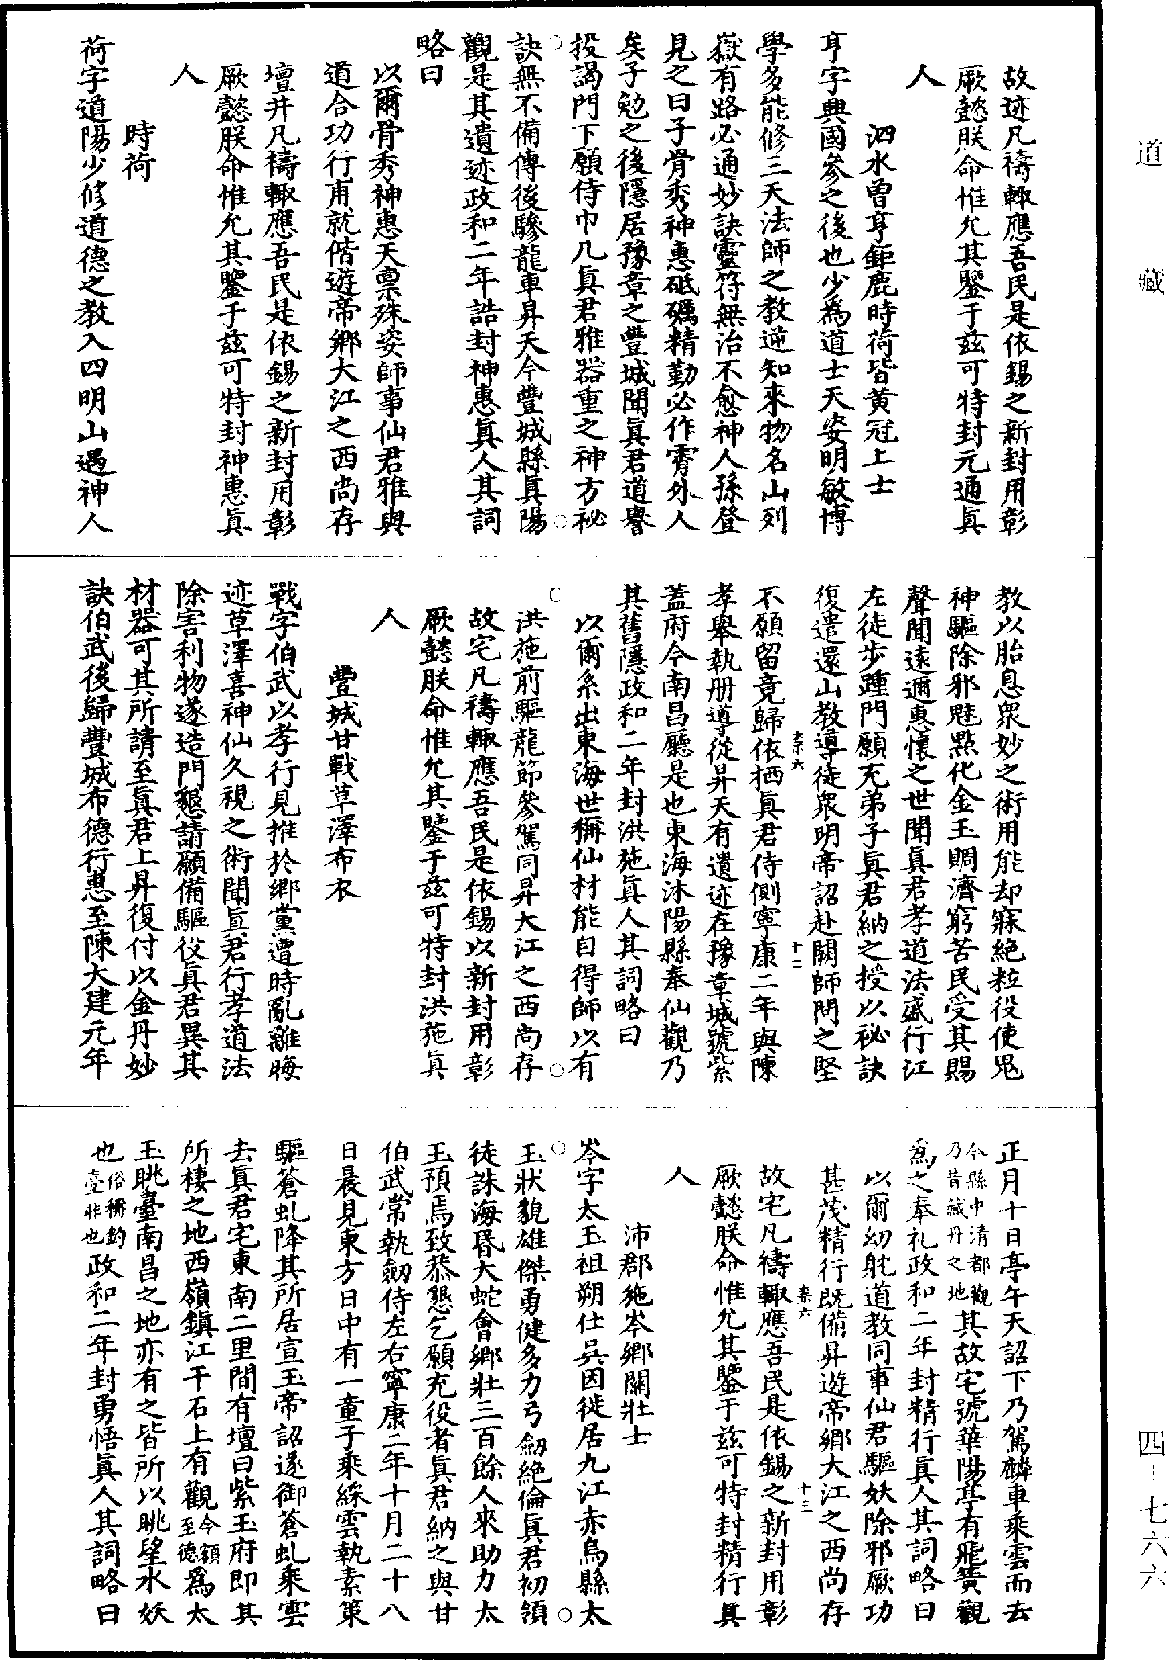 道藏
四-七六六
故迹凡禱輙應吾民是依錫之新封用彰
厥懿朕命惟允其鑒于兹可特封元通真
人
泗水曾亨鉅鹿時荷皆黄冠上士
亨字興國參之後也少為道士天姿明敏博
學多能修三天法師之教逆知來物名山列
嶽有路必通妙訣靈符無治不愈神人孫登
見之曰子骨秀神惠砥礪精勤必作霄外人
矣子勉之後隱居豫章之豐城聞真君道譽
投謁門下願侍巾几真君雅器重之神方祕
訣無不備傳後驂龍車昇天今豐城縣真陽
觀是其遺迹政和二年誥封神惠真人其詞
略曰
以爾骨秀神惠天禀殊姿師事仙君雅與
道合功行甫就偕遊帝鄉大江之西尚存
壇井凡禱輙應吾民是依錫之新封用彰
厥懿朕命惟允其鑒于兹可特封神惠真
人
時荷
荷字道陽少修道德之教入四明山遇神人
教以胎息衆妙之術用能却寐絶粒役使鬼
神驅除邪魅點化金玉賙濟窮苦民受其賜
聲聞遠邇惠懷之世聞真君孝道法盛行江
左徒步踵門願充弟子真君納之授以祕訣
復遣還山教導徒衆明帝詔赴闕師問之堅
不願留竟歸依栖真君侍側寧康二年與陳
孝舉執册導從昇天有遺迹在豫章城號紫
蓋府今南昌廳是也東海沐陽縣奉仙觀乃
其舊隱政和二年封洪施真人其詞略曰
以爾系出東海世稱仙材能自得師以有
洪施前驅龍節參駕同昇大江之西尚存
故宅凡禱輙應吾民是依錫以新封用彰
厥懿朕命惟允其鑒于兹可特封洪施真
人
豐城甘戰草澤布衣
戰字伯武以孝行見推於鄉黨遭時亂離晦
迹草澤喜神仙久視之術聞真君行孝道法
除害利物遂造門懇請願備驅役真君異其
材器可其所請至真君上昇復付以金丹妙
訣伯武後歸豐城布德行惠至陳大建元年
正月十日亭午天詔下乃駕麟車乘雲而去
今縣中清都觀乃昔藏丹之地其故宅號華陽亭有飛黌觀
為之奉礼政和二年封精行真人其詞略曰
以爾幼躭道教同事仙君驅妖除邪厥功
甚茂精行既備昇遊帝鄉大江之西尚存
故宅凡禱輙應吾民是依錫之新封用彰
厥懿朕命惟允其鑒于兹可特封精行真
人
沛郡施岑鄉關壯士
岑字太玉祖朔仕吳因徙居九江赤烏縣太
玉狀貌雄傑勇健多力弓劒絶倫真君初領
徒誅海昏大蛇會鄉壯三百餘人來助力太
玉預焉致恭懇乞願充役者真君納之與甘
伯武常執劒侍左右寧康二年十月二十八
日晨見東方日中有一童子乘綵雲執素策
驅蒼虬降其所居宣玉帝詔遂御蒼虬乘雲
去真君宅東南二里間有壇曰紫玉府即其
所棲之地西嶺鎮江干石上有觀今額至德為太
玉眺臺南昌之地亦有之皆所以眺望水妖
也俗稱釣臺非也政和二年封勇悟真人其詞略曰